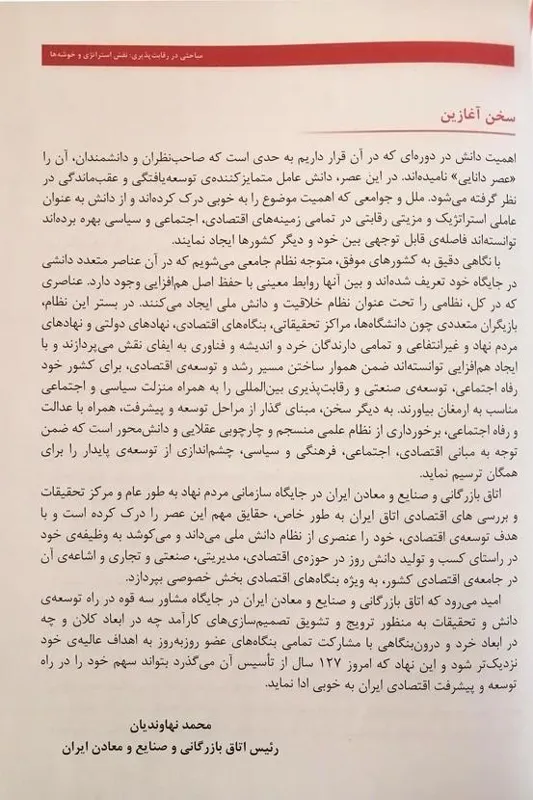 مباحثی در رقابت‌پذیری: نقش استراتژی و خوشه‌ها
سخن آغازین
اهمیت دانش در دوره‌ای که در آن قرار داریم به حدی است که صاحب‌نظران و دانشمندان، آن را
«عصر دانایی» نامیده‌اند. در این عصر، دانش عامل متمایزکننده‌ی توسعه‌یافتگی و عقب‌ماندگی در
نظر گرفته می‌شود. ملل و جوامعی که اهمیت موضوع را به خوبی درک کرده‌اند و از دانش به عنوان
عاملی استراتژیک و مزیتی رقابتی در تمامی زمینه‌های اقتصادی، اجتماعی و سیاسی بهره برده‌اند
توانسته‌اند فاصله‌ی قابل توجهی بین خود و دیگر کشورها ایجاد نمایند.
با نگاهی دقیق به کشورهای موفق، متوجه نظام جامعی می‌شویم که در آن عناصر متعدد دانشی
در جایگاه خود تعریف شده‌اند و بین آنها روابط معینی با حفظ اصل هم‌افزایی وجود دارد. عناصری
که در کل، نظامی را تحت عنوان نظام خلاقیت و دانش ملی ایجاد می‌کنند. در بستر این نظام،
بازیگران متعددی چون دانشگاه‌ها، مراکز تحقیقاتی، بنگاه‌های اقتصادی، نهادهای دولتی و نهادهای
مردم نهاد و غیرانتفاعی و تمامی دارندگان خرد و اندیشه و فناوری به ایفای نقش می‌پردازند و با
ایجاد هم‌افزایی توانسته‌اند ضمن هموار ساختن مسیر رشد و توسعه‌ی اقتصادی، برای کشور خود
رفاه اجتماعی، توسعه‌ی صنعتی و رقابت‌پذیری بین‌المللی را به همراه منزلت سیاسی و اجتماعی
مناسب به ارمغان بیاورند. به دیگر سخن، مبنای گذار از مراحل توسعه و پیشرفت، همراه با عدالت
و رفاه اجتماعی، برخورداری از نظام علمی منسجم و چارچوبی عقلایی و دانش‌محور است که ضمن
توجه به مبانی اقتصادی، اجتماعی، فرهنگی و سیاسی، چشم‌اندازی از توسعه‌ی پایدار را برای
همگان ترسیم نماید.
اتاق بازرگانی و صنایع و معادن ایران در جایگاه سازمانی مردم نهاد به طور عام و مرکز تحقیقات
و بررسی های اقتصادی اتاق ایران به طور خاص، حقایق مهم این عصر را درک کرده است و با
هدف توسعه‌ی اقتصادی، خود را عنصری از نظام دانش ملی می‌داند و می‌کوشد به وظیفه‌ی خود
در راستای کسب و تولید دانش روز در حوزه‌ی اقتصادی، مدیریتی، صنعتی و تجاری و اشاعه‌ی آن
در جامعه‌ی اقتصادی کشور، به ویژه بنگاه‌های اقتصادی بخش خصوصی بپردازد.
امید می‌رود که اتاق بازرگانی و صنایع و معادن ایران در جایگاه مشاور سه قوه در راه توسعه‌ی
دانش و تحقیقات به منظور ترویج و تشویق تصمیم‌سازی‌های کارآمد چه در ابعاد کلان و چه
در ابعاد خرد و درون‌بنگاهی با مشارکت تمامی بنگاه‌های عضو روزبه‌روز به اهداف عالیه‌ی خود
نزدیک‌تر شود و این نهاد که امروز ۱۲۷ سال از تأسیس آن می‌گذرد بتواند سهم خود را در راه
توسعه و پیشرفت اقتصادی ایران به خوبی ادا نماید.
محمد نهاوندیان
رئیس اتاق بازرگانی و صنایع و معادن ایران